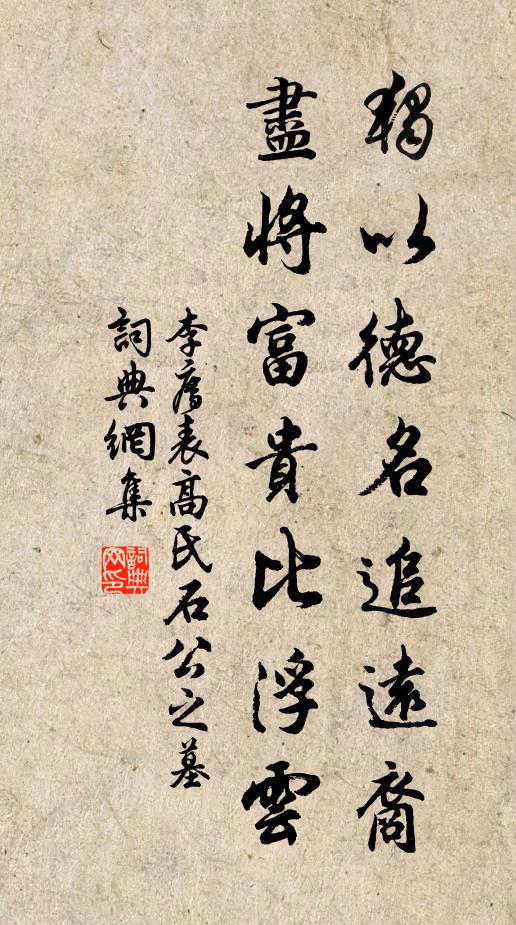 獨以德名追遠裔
盡將富貴比浮雲
李膺表高氏石公之墓
詞典網集
詞典網印